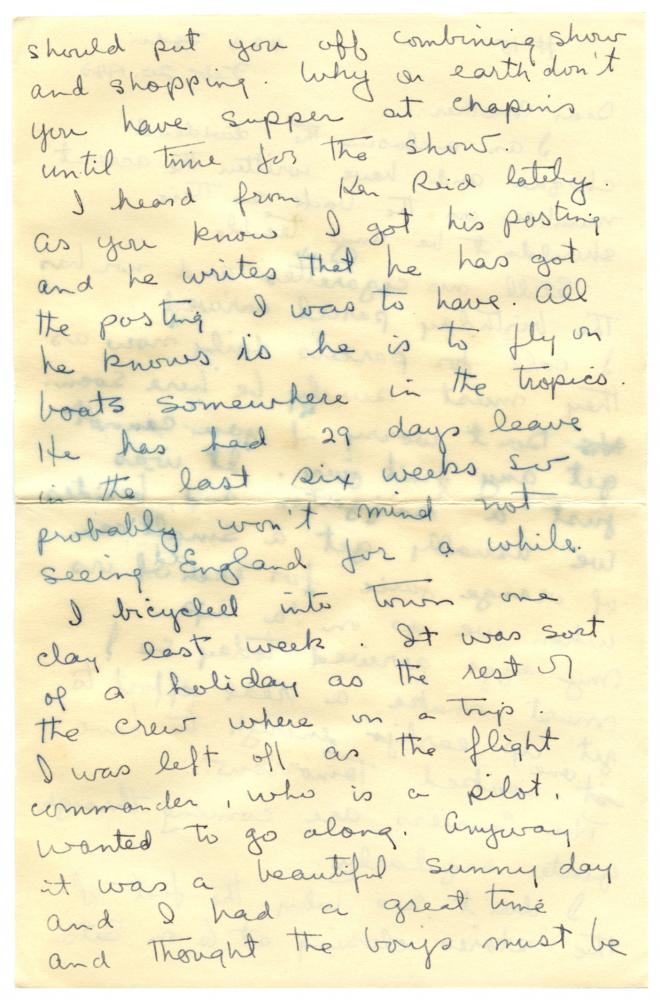 should put you off combining show
and shopping. Why on earth don't
you have supper at Chapins
until time for the show.
I heard from Ken Reid lately.
As you know I got his posting
and he writes that he has got
the posting I was to have. All
he knows is he is to fly on
boats somewhere in the tropics.
He has had 29 days leave
in the last six weeks so
probably won't mind not
seeing England for a while.
I bicycled into town one
day last week. It was sort
of a holiday as the rest of
the crew where on a trip.
I was left off as the flight
commander, who is a pilot,
wanted to go along. Anyway
it was a beautiful sunny day
and I had a great time
and thought the boys must be